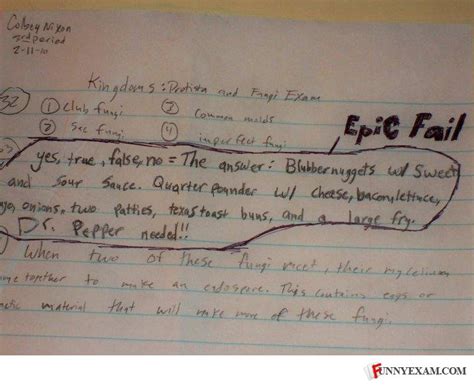 Colbey Nixon
3rd period
2-11-10
Kingdoms: Protista and Fungi Exam
32 ① Club fungi ③ Common molds
② Sac fungi ④ imperfect fungi
Epic Fail
yes, true, false, no = The answer: Blubbernuggets w/ Sweet
and sour sauce. Quarter pounder w/ cheese, bacon, lettuce,
onions, two patties, texas toast buns, and a large fry.
Dr. Pepper needed!!
When two of these fungi meet, their mycelium
together to make an endospore. This contains eggs or
material that will make more of these fungi.
FUNNYEXAM.COM